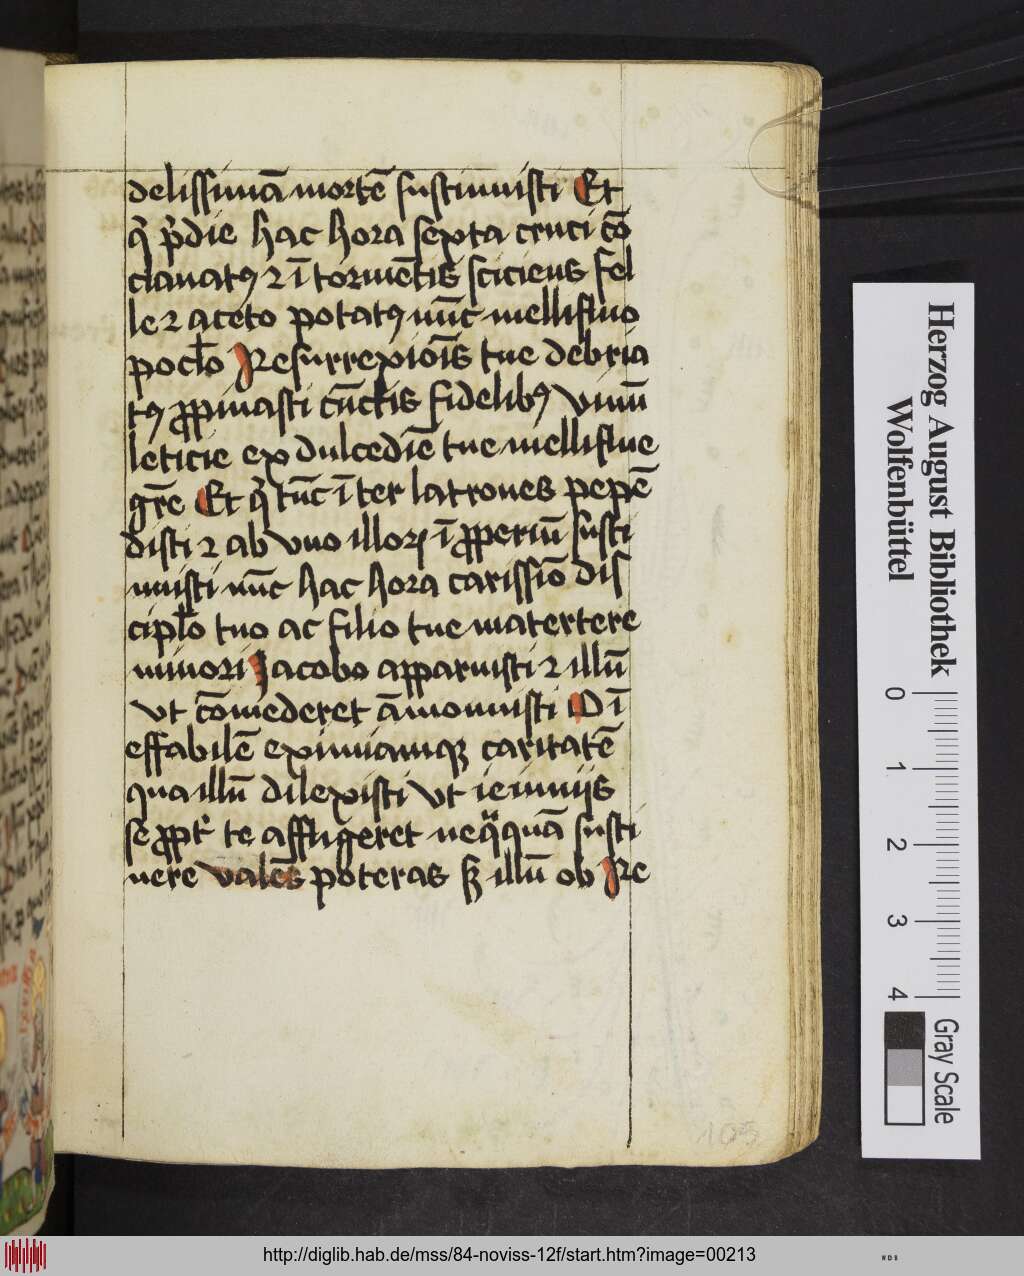 delissimā mortē sustinuisti Et
q̄ p̄die hac hora sexta cruci cō
clauatꝯ ⁊ ī tormētis sciciens fel
le ⁊ aceto potatꝯ nūc mellifluo
poclō Resurrexiōis tue debria
tꝯ ꝓpinasti cūctis fidelibꝯ vinū
leticie ex dulcedīe tue melliflue
grē Et q̄ tūc īter latrones pepē
disti ⁊ ab vno illoꝝ īꝓperiū susti
nuisti nūc hac hora carissīo dis
ciplō tuo ac filio tue matertere
minori Jacobo apparuisti ⁊ illū
vt cōmederet āmonuisti O ī
effabilē eximiamqꝫ caritatē
qua illū dilexisti vt ieiunijs
se ꝓpt̄ te affligeret neqᵃquā susti
nere valēs poteras sꝫ illū ob Re
105
Herzog August Bibliothek
Wolfenbüttel
0 1 2 3 4
Gray Scale
http://diglib.hab.de/mss/84-noviss-12f/start.htm?image=00213